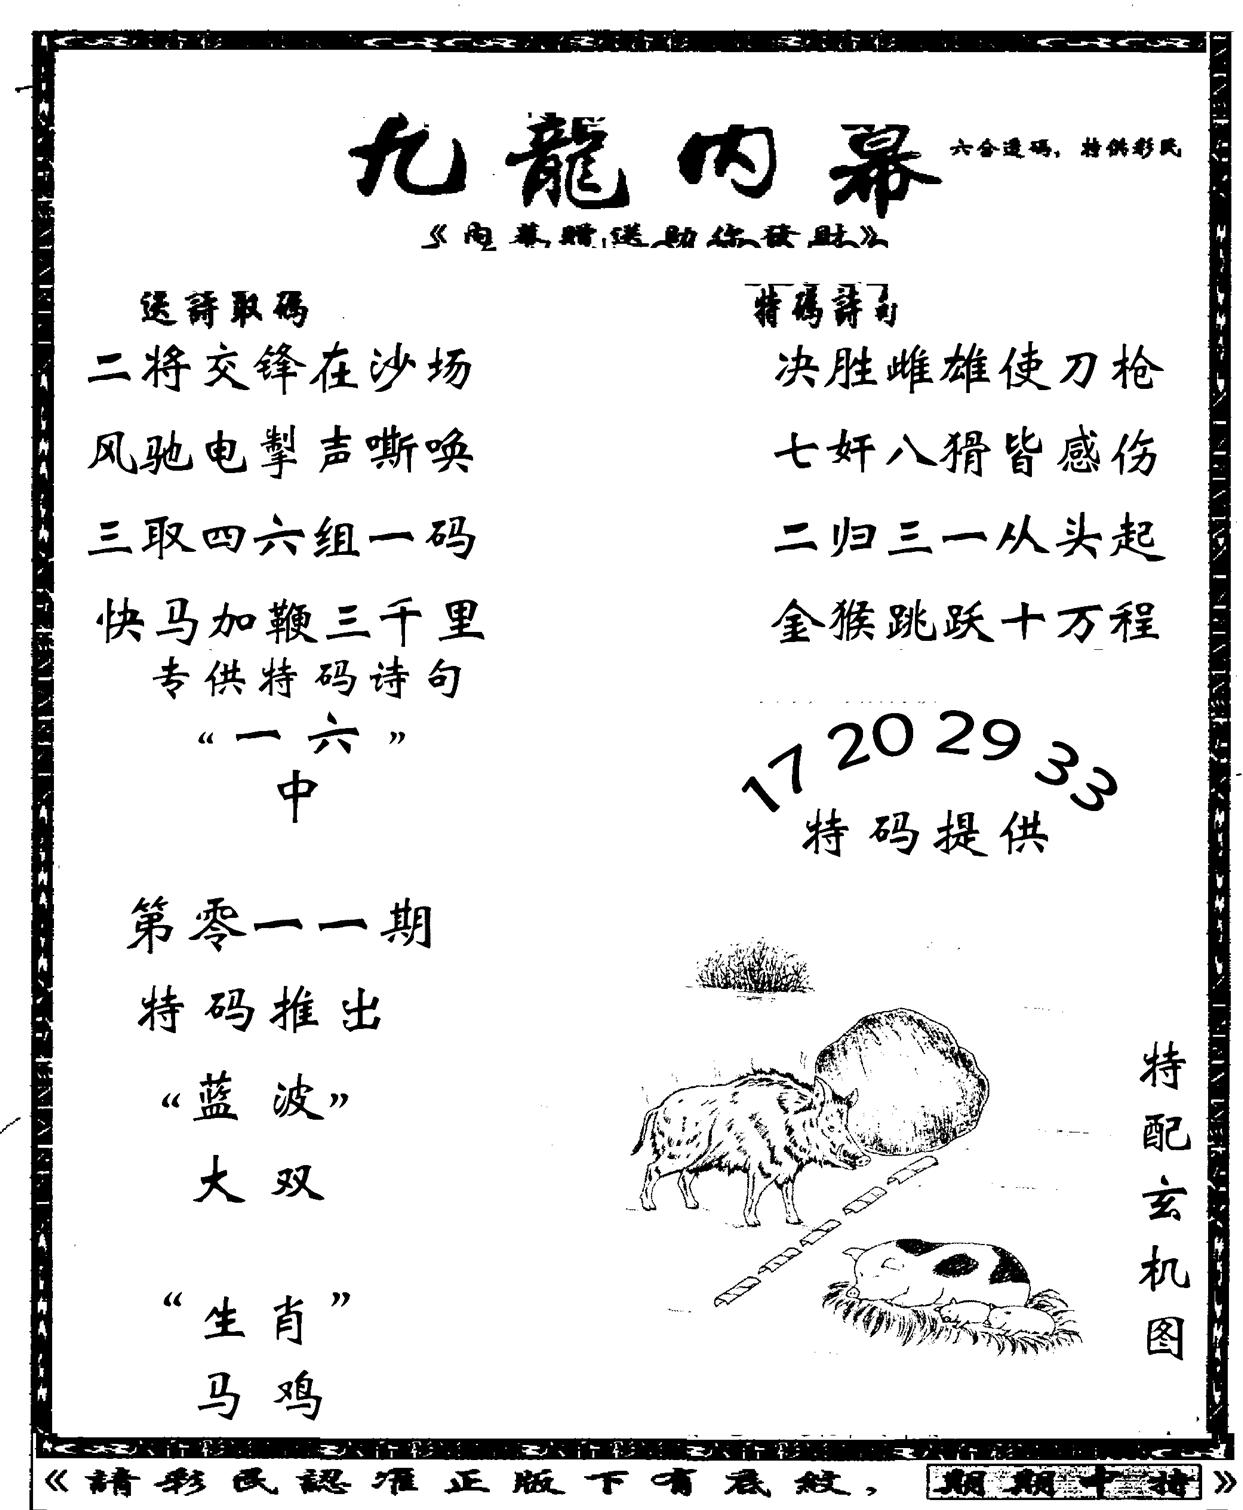 九龍内幕
六合透码，特供彩民
《内幕赠送助你發財》
送詩取碼
二将交锋在沙场
风驰电掣声嘶唤
三取四六组一码
快马加鞭三千里
专供特码诗句
“一六”
中
第零一一期
特码推出
“蓝波”
大双
“生肖”
马鸡
特碼詩句
决胜雌雄使刀枪
七奸八猾皆感伤
二归三一从头起
金猴跳跃十万程
17 20 29 33
特码提供
特配玄机图
《請彩民認准正版下有底紋，期期中特》